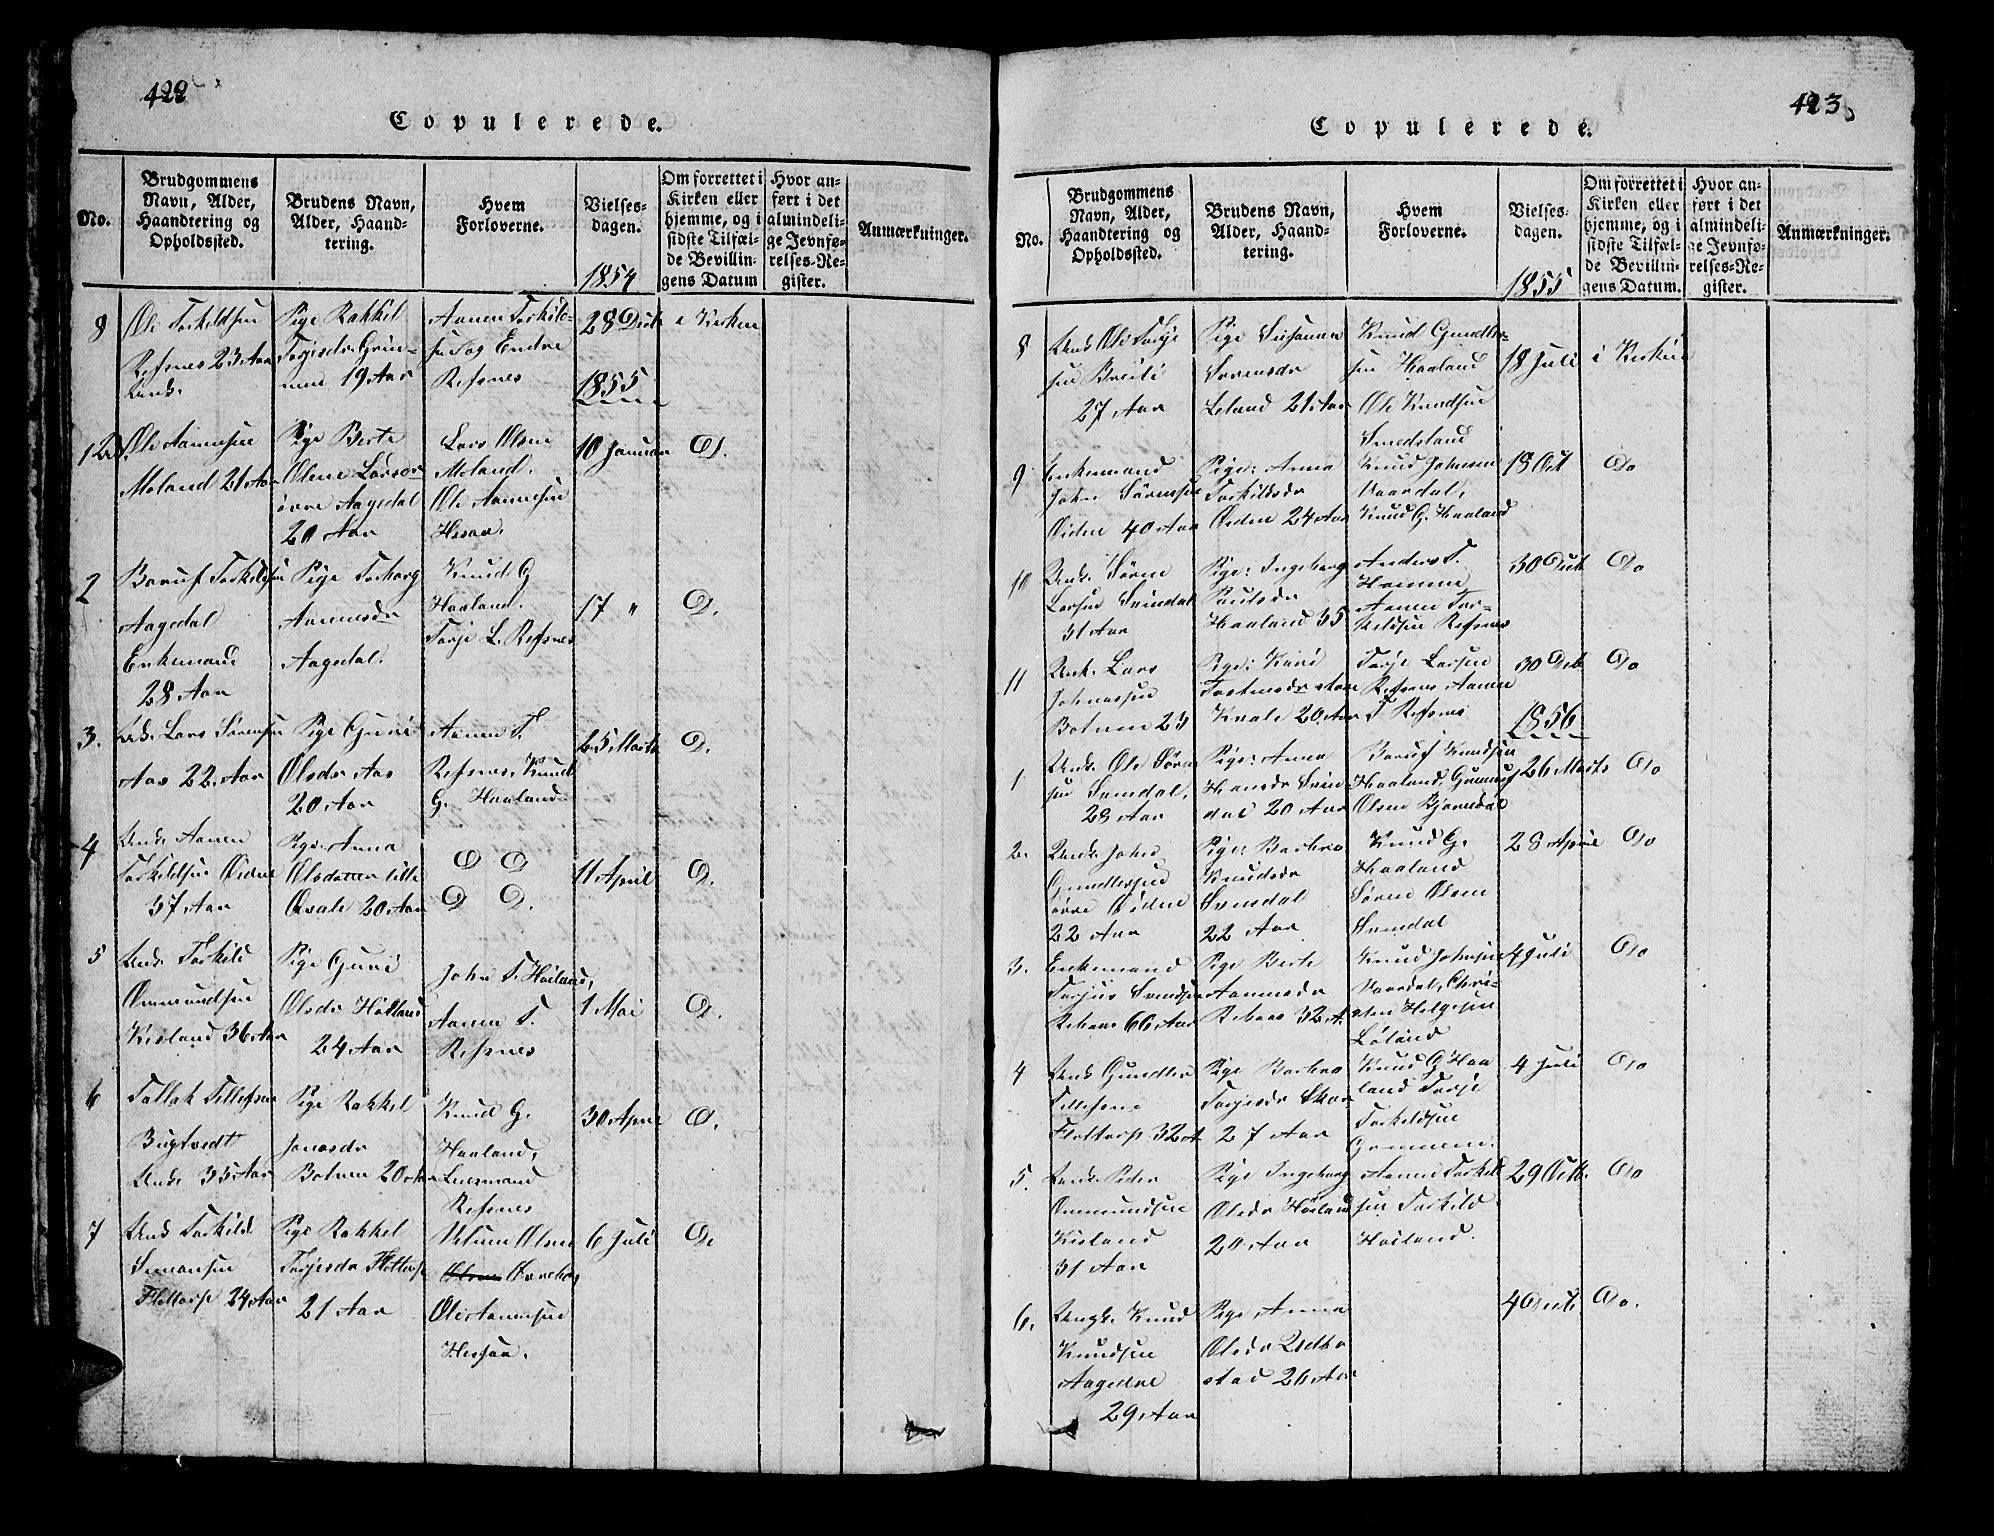 422
Copulerede.
No.
Brudgommens Navn, Alder, Haandtering og Opholdssted.
Brudens Navn, Alder, Haandtering.
Hvem Forloverne.
Vielsesdagen.
1854
Om forrettet i Kirken eller hjemme, og i sidste Tilfælde Bevillingens Datum
Hvor anført i det almindelige Jevnførelses-Register.
Anmærkninger.
8
Ole Torkildsen
Refsnes 23 Aar
Unk.
Pige Rakkel
Torjesdr Grimmen 19 Aar
Aanen Torkildsen og Endre
Refsnes
28 Decb
i Kirken
1855
1
Ole Aanensen
Moland 21 Aar
Pige Berte
Olene Larsdr
øvre Aagedal
20 Aar
Lars Olsen
Moland.
Ole Aanensen
Hesaa.
10 Januar
D.
2
Baruf Torkildsen
Aagedal
Enkemand
28 Aar
Pige Torborg
Aanensdr
Aagedal.
Knud G
Haaland.
Torje L. Refsnes
17 "
D.
3.
Unk. Lars Sørensen
Aas 22 Aar
Pige Guri
Olsdr Aas
20 Aar
Aanen T.
Refsnes, Knud
G. Haaland
25 Marts
D.
4
Unk. Aanen
Torkildsen Øidne
37 Aar
Pige Anna
Olsdatter lille
Qvale 20 Aar
D D
D D.
11 April
D.
5
Unk. Torkild
Ommundsen
Kisland 36 Aar
Pige Guri
Olsdr Høiland
24 Aar
John T. Høiland,
Aanen T.
Refsnes
1 Mai
D.
6
Tallak Tellefsen
Bugtvedt
Unk. 35 Aar
Pige Rakkel
Jonasdr
Botnen 20 Aar
Knud G.
Haaland,
Lensmand
Refsnes
30 April
D.
7
Unk Torkild
Simonsen
Flottorp 24 Aar
Pige Rakkel
Torjesdr Flottorp
21 Aar
Olsen
Ole Aanensen
Hessaa.
6 Juli
D.
423
Copulerede.
No.
Brudgommens Navn, Alder, Haandtering og Opholdssted.
Brudens Navn, Alder, Haandtering.
Hvem Forloverne.
Vielsesdagen.
1855
Om forrettet i Kirken eller hjemme, og i sidste Tilfælde Bevillingens Datum.
Hvor anført i det almindelige Jevnførelses-Register.
Anmærkninger.
8
Unk Ole Torjesen Breili
27 Aar
Pige Susanna
Sørensdr
Leland 21 Aar
Knud Gundersen Haaland
Ole Knudsen
Smedsland
18 Juli
i Kirken
9
Enkemand
John Sørensen
Øidne 40 Aar
Pige: Anna
Torkildsdr
Øidne 24 Aar
Knud Johnsen
Vaardal,
Knud G. Haaland
18 Oct
Do
10
Unk. Søren
Larsen Svindal
31 Aar
Pige: Ingeborg
Paulsdr
Haaland 35
Anders T.
Homme
Aanen Torkildsen Refsnes
30 Decb
Do
11
Unk. Lars
Johnassen
Botnen 23
Pige: Kari
Tostensdr store
Kvale 20 Aar
Torje Larsen
Refsnes Aanen
T Refsnes
30 Decb
Do
1856
1
Unk. Ole Sørensen Svindal.
28 Aar
Pige: Anna
Hansdr Svindal 20 Aar
Baruf Knudsen
Haaland,
Olsen Bjorndal
26 Marts
Do
2.
Unk. John
Gundersen
Øidne
22 Aar
Pige: Barbro
Knudsdr
Svindal
22 Aar
Knud G.
Haaland
Søren Olsen
Svindal
28 April
Do
3.
Enkemand
Torjus Svendsen
66 Aar
Pige Berte
Aanensdr
32 A.
Knud Johnsen
Vaardal, Christen Helgesen
Løland
4 Juli
Do
4
Unk Gunder
Tellefsen
Flottorp 32 A
Pige Barbro
Torjesdr Skar
27 Aar
Knud G Haaland Torje
Torkildsen
Grimmen.
4 Juli
Do
5.
Unk. Peder
Ommundsen
Kisland
31 Aar
Pige Ingeborg
Olsdr Høiland
20 Aar
Aanen Torkildsen Torkild
Høiland.
29 Octb.
Do
6.
Ungk. Knud
Knudsen
Aagedal
29 Aar
Pige Anna
Olsdr
26 Aar
4 Decb
Do.